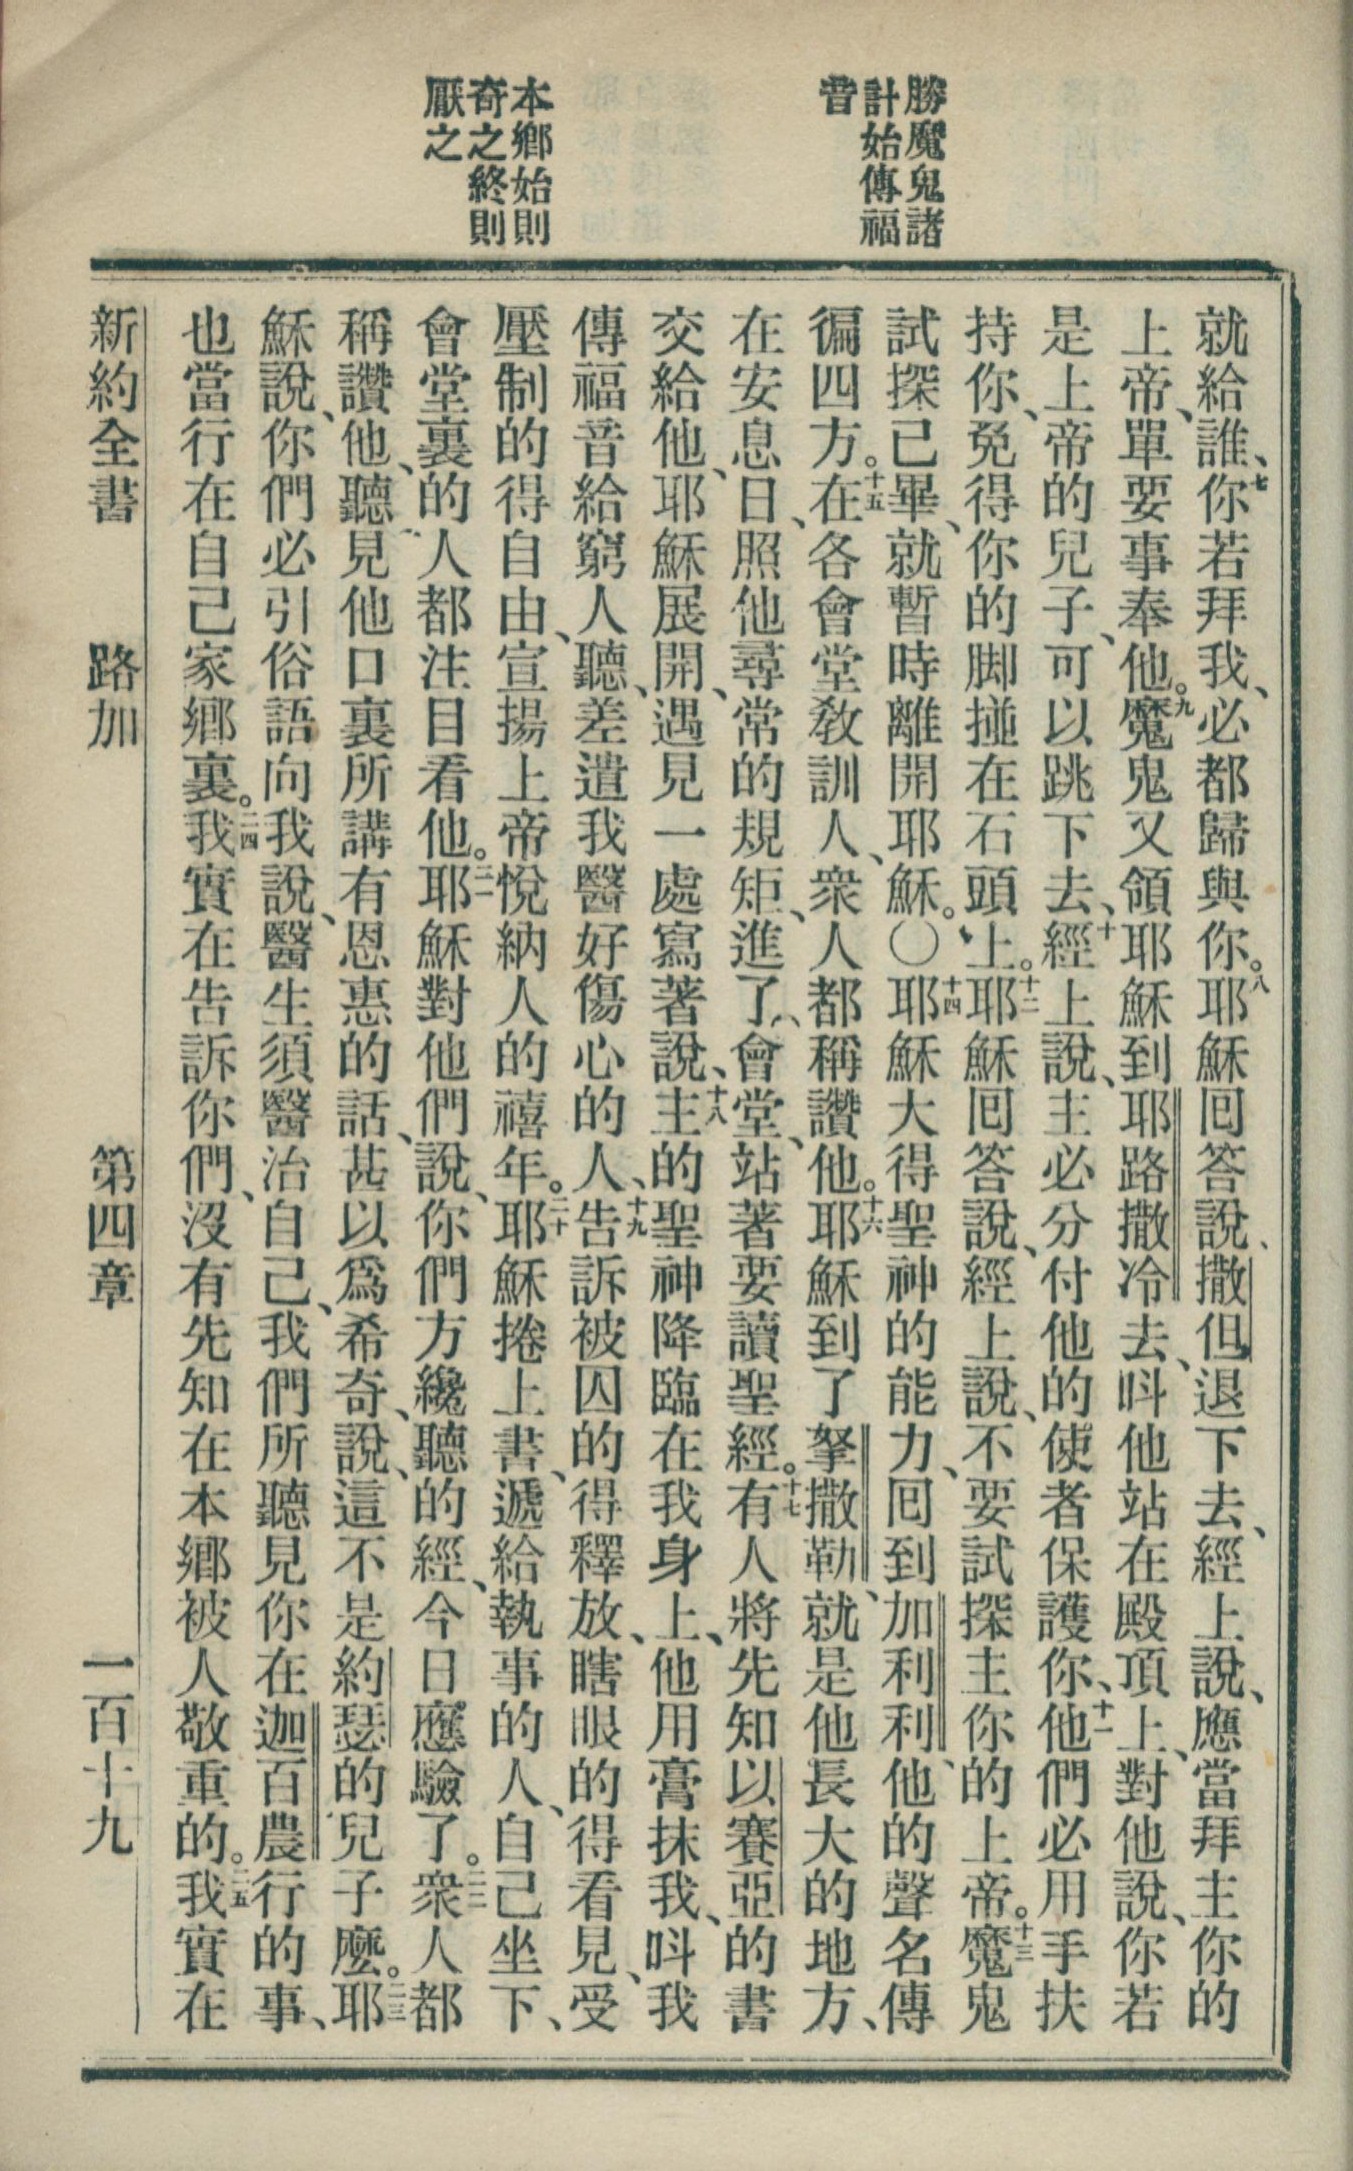 勝魔鬼諸
計始傳福
音
本鄉始則
奇之終則
厭之
就給誰、七你若拜我、必都歸與你。八耶穌囘答說、撒但退下去、經上說、應當拜主你的
上帝、單要事奉他。九魔鬼又領耶穌到耶路撒冷去、呌他站在殿頂上、對他說、你若
是上帝的兒子、可以跳下去、十經上說、主必分付他的使者保護你、十一他們必用手扶
持你、免得你的脚掽在石頭上。十二耶穌囘答說、經上說、不要試探主你的上帝。十三魔鬼
試探已畢、就暫時離開耶穌。〇十四耶穌大得聖神的能力、囘到加利利、他的聲名傳
徧四方。十五在各會堂敎訓人、衆人都稱讚他。十六耶穌到了拏撒勒、就是他長大的地方、
在安息日、照他尋常的規矩、進了會堂、站著要讀聖經。十七有人將先知以賽亞的書
交給他、耶穌展開、遇見一處寫著說、十八主的聖神降臨在我身上、他用膏抹我、呌我
傳福音給窮人聽、差遣我醫好傷心的人、十九告訴被囚的得釋放、瞎眼的得看見、受
壓制的得自由、宣揚上帝悅納人的禧年。二十耶穌捲上書、遞給執事的人、自己坐下、
會堂裏的人都注目看他。二一耶穌對他們說、你們方纔聽的經、今日應驗了。二二衆人都
稱讚他、聽見他口裏所講有恩惠的話、甚以爲希奇、說、這不是約瑟的兒子麼。二三耶
穌說、你們必引俗語向我說、醫生須醫治自己、我們所聽見你在迦百農行的事、
也當行在自己家鄉裏。二四我實在告訴你們、沒有先知在本鄉被人敬重的。二五我實在
新約全書 路加 第四章 一百十九